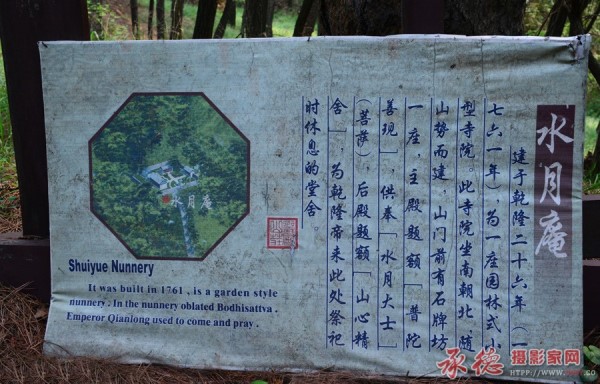 水月庵
建于乾隆二十六年（一
七六一年），为一座园林式小
型寺院。此寺院坐南朝北，随
山势而建，山门前有石牌坊
一座，主殿题额「普陀
善现」，供奉「水月大士」
（菩萨），后殿题额「山心精
舍」，为乾隆帝来此处祭祀
时休息的堂舍。
水月庵
Shuiyue Nunnery
It was built in 1761 , is a garden style
nunnery . In the nunnery oblated Bodhisattva .
Emperor Qianlong used to come and pray .
承德 摄影家网
HTTP://WWW.